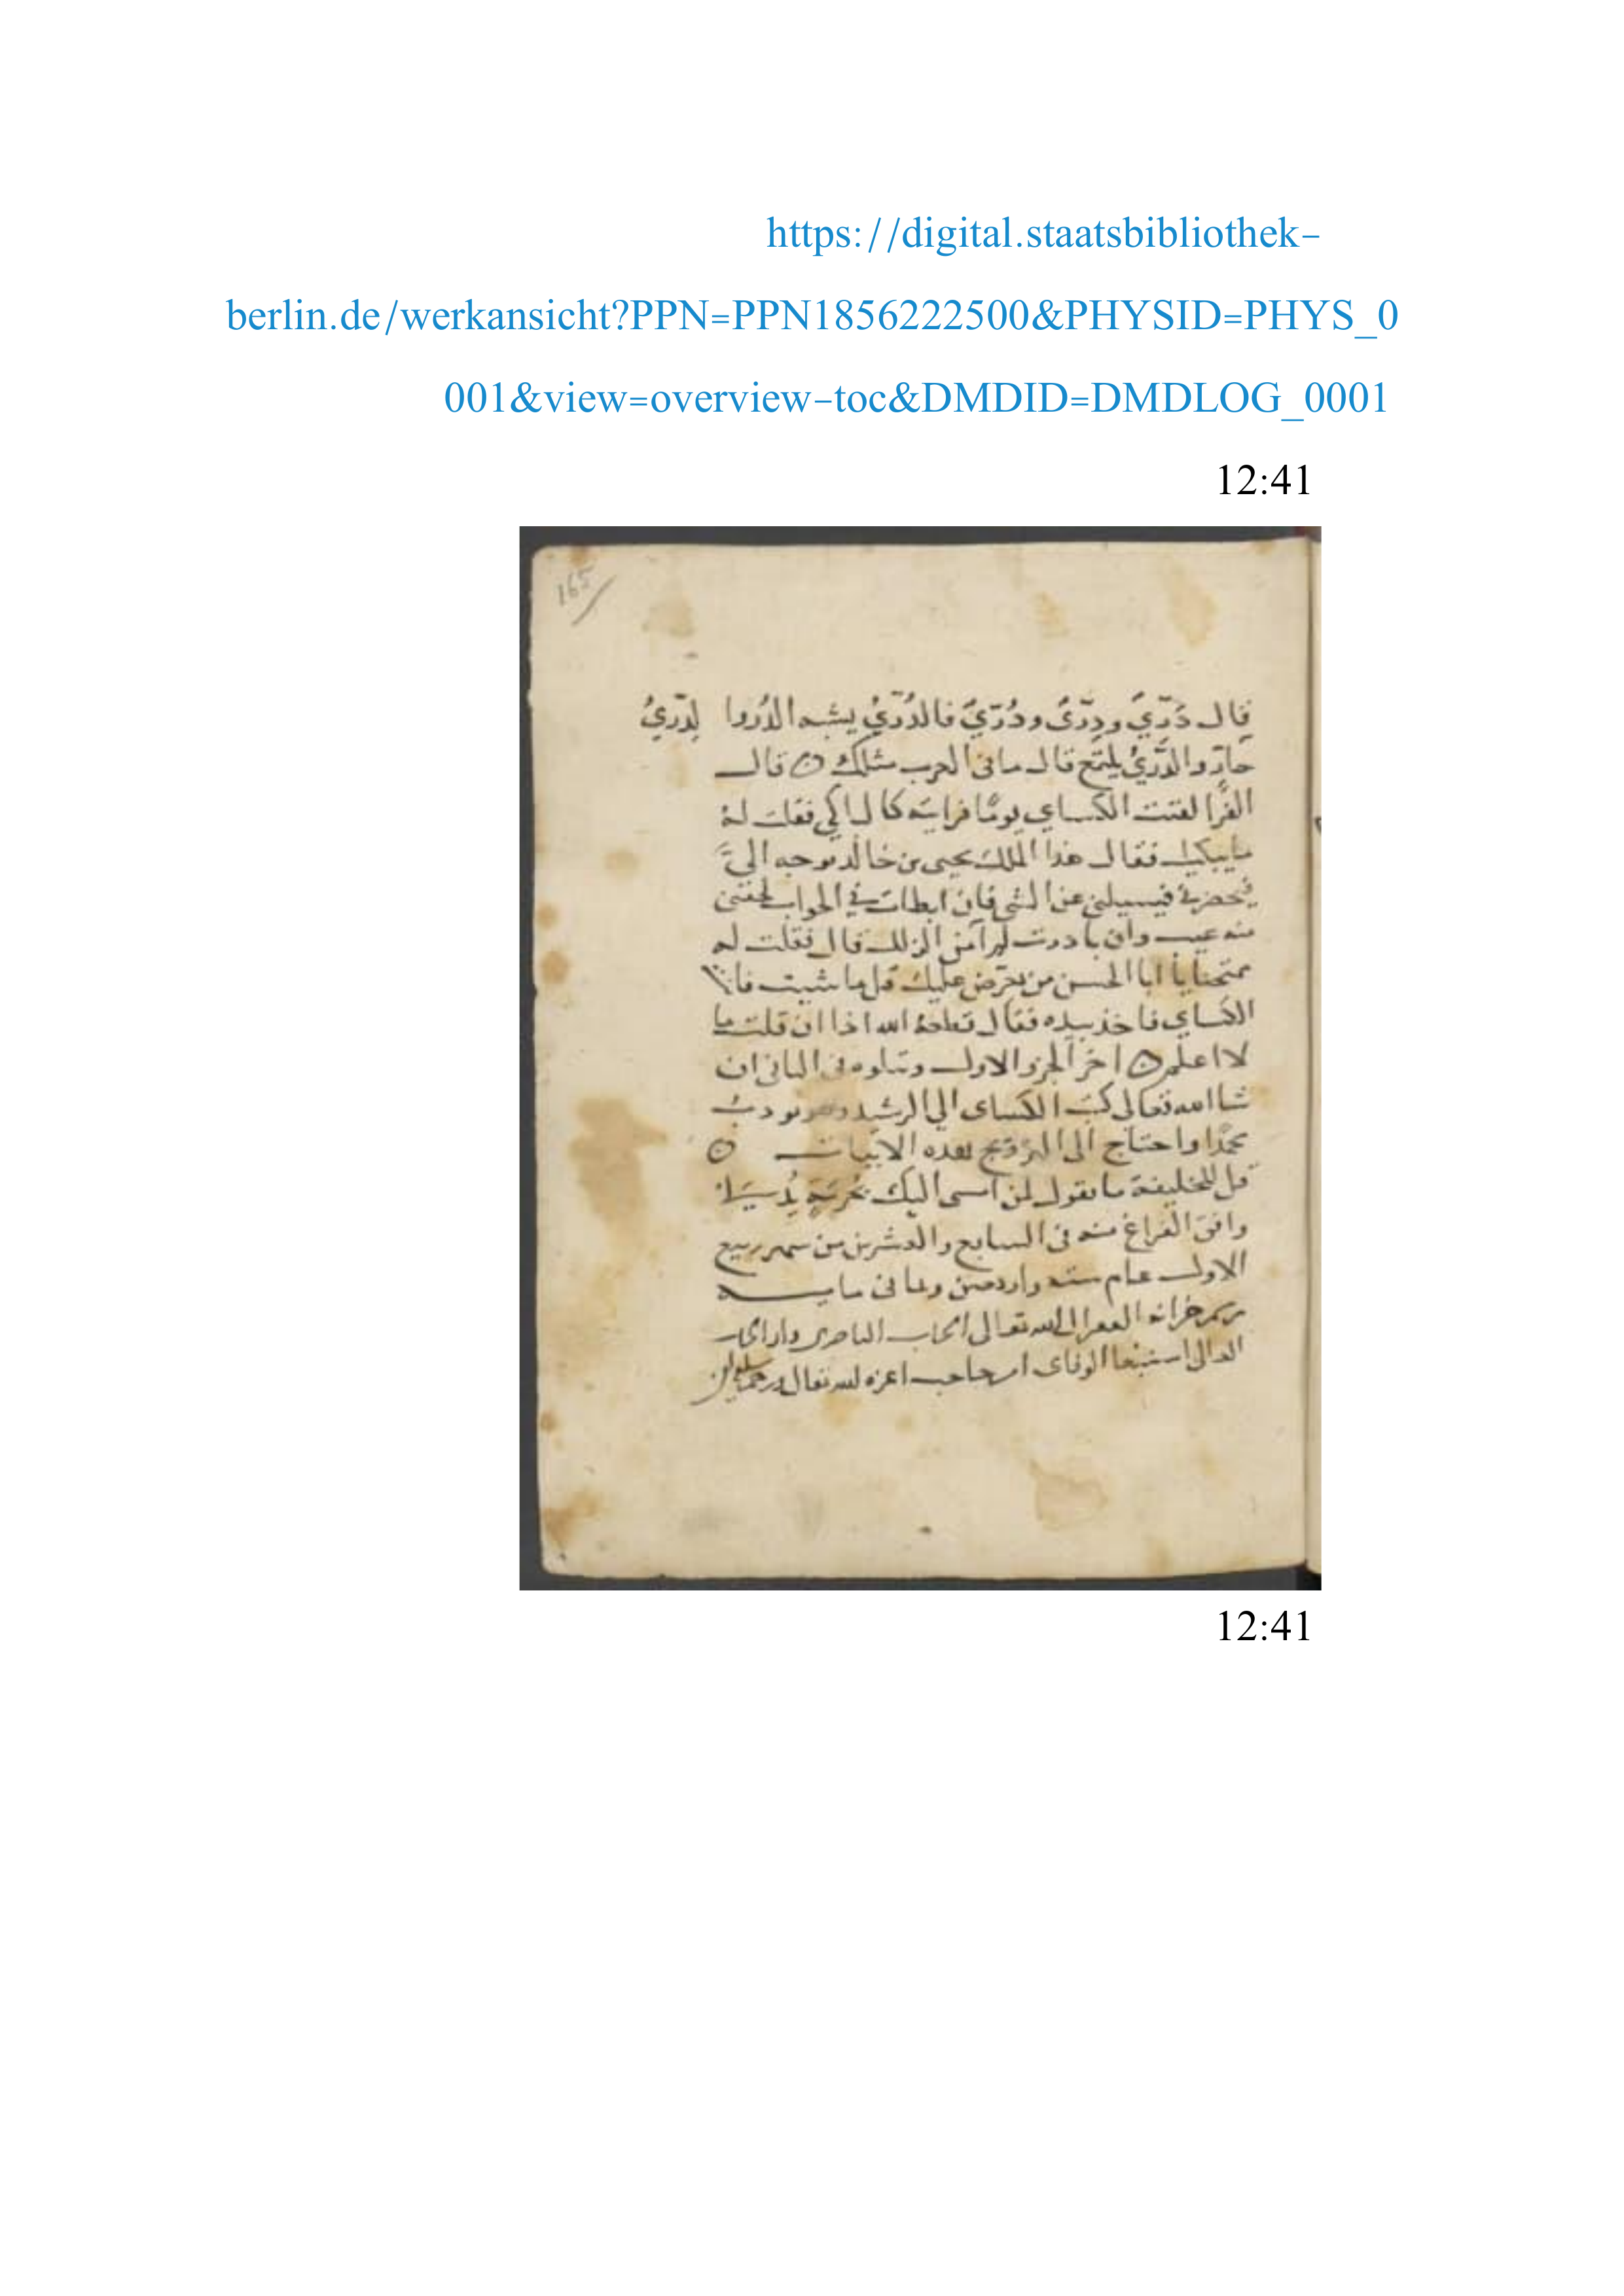 https://digital.staatsbibliothek-
berlin.de/werkansicht?PPN=PPN1856222500&PHYSID=PHYS_0
001&view=overview-toc&DMDID=DMDLOG_0001
12:41
165
قال دَرِّيَ ودِرّىَ ودُرّيَ فالدُرّيُ يشبه الدُر وا لدِرّيُ
جارٍ والدَّرّيُ يلتمع قال ما فى العرب مثلك ه قال
الفرّا لقيت الكساي يومًا فرايته كالباكي فقلت لهُ
ما يبكيك فقال هذا الملك يحيى بن خالد يوجه اليَّ
فيحضرني فيسيلني عن الشي فان ابطات في الجواب لحقني
منه عيب وان بادرت لم آمن الزلل قال فقلت له
ممتحنا يا ابا الحسن من يعترض عليك قل ما شيت فانت
الكساي فاخذ بيده فقال قطعهُ الله اذا ان قلت ما
لا اعلم ه اخر الجزو الاول وتتلوه فى الثانى ان
شا الله تعالى كتبَ الكساى الي الرشيد وهو يودبُ
محمدًا واحتاج الى التزويج بهذه الابيات ه
قل للخليفة ما تقول لمن امسى اليك بحُرمَةٍ يُدلِي
وافق الفراغ منه فى السابع والعشرين من شهر ربيع
الاول عام ستة واربعين وثمانى مايـــه
برسم خزانه الفقير الى الله تعالى الجناب الناصرى
الوفاى امير حاجب اعزه الله تعالى
12:41